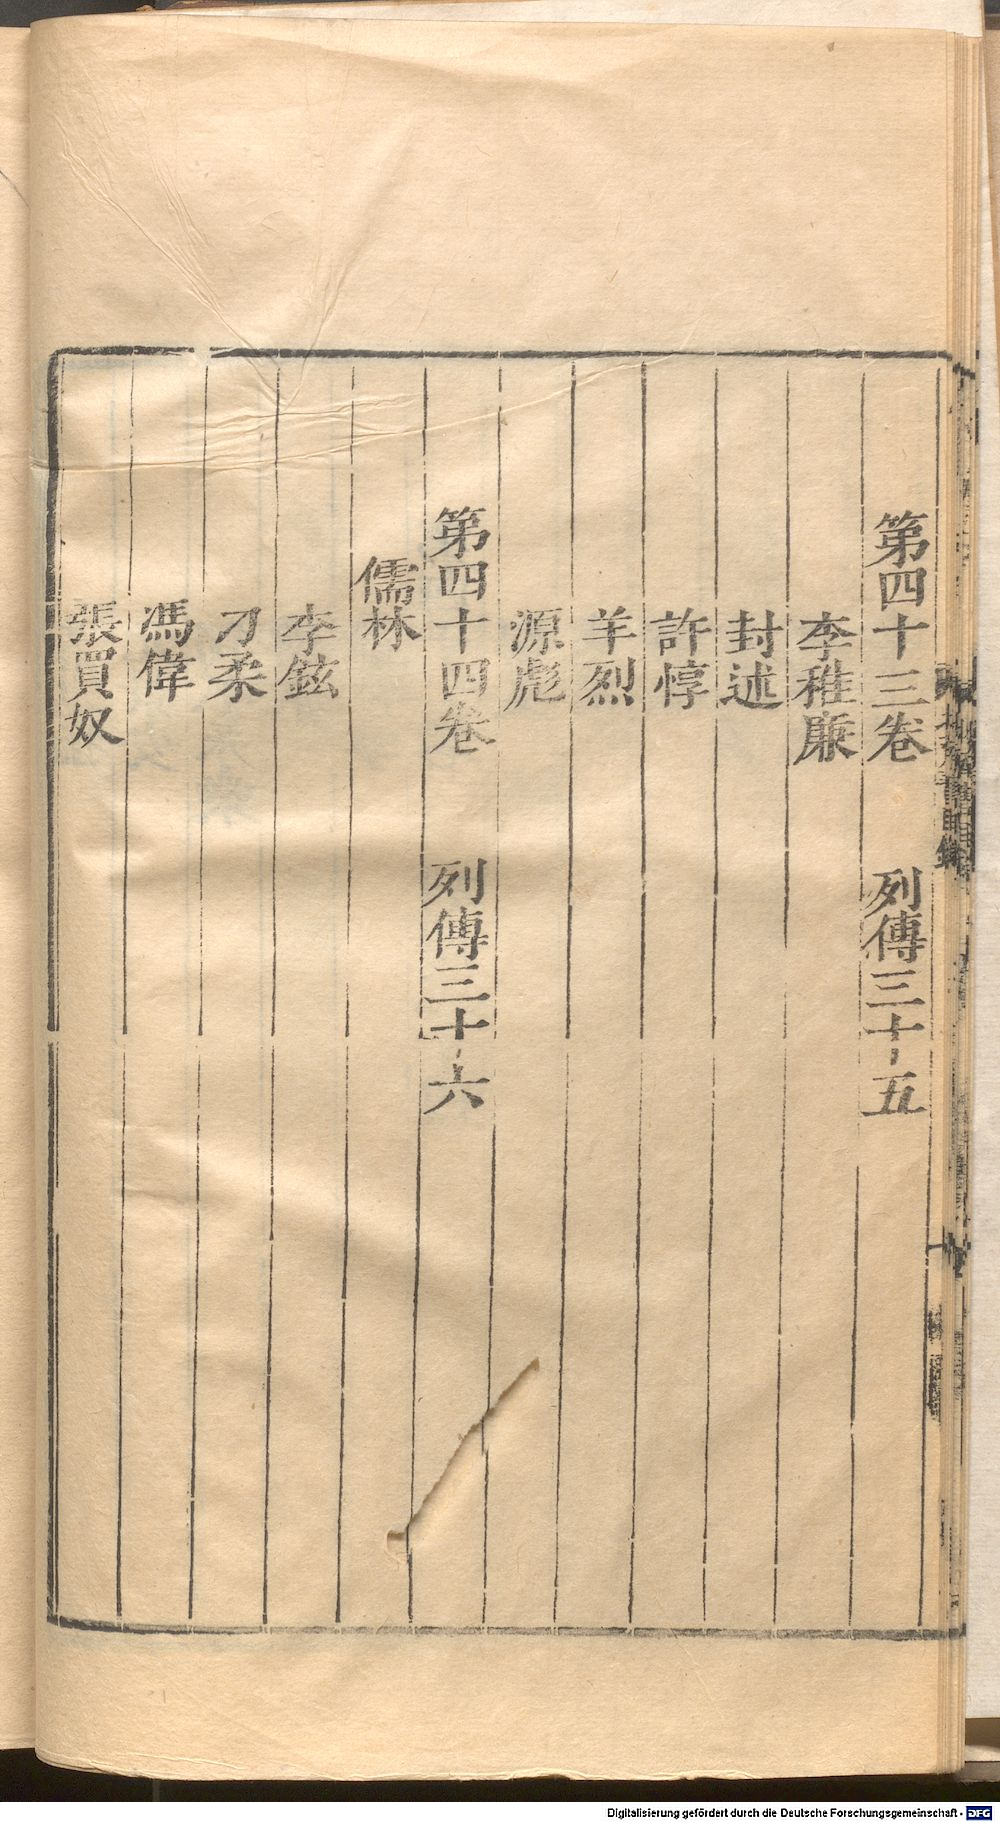 第四十三卷 列傳三十五
李稚廉
封述
許惇
羊烈
源彪
第四十四卷 列傳三十六
儒林
李鉉
刁柔
馮偉
張買奴
Digitalisierung gefördert durch die Deutsche Forschungsgemeinschaft - DFG